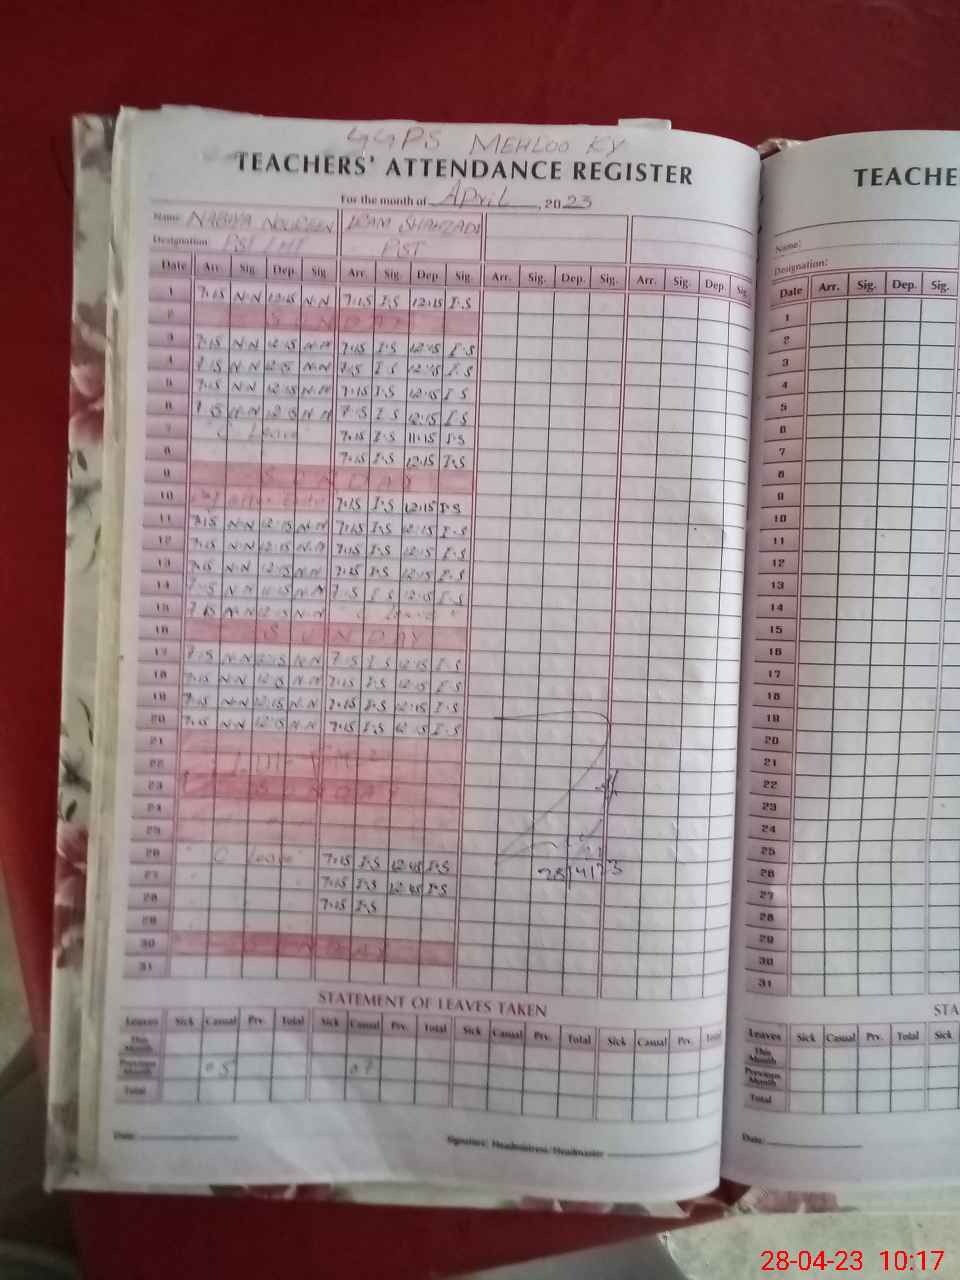 GGPS MEHLOO KY
TEACHERS' ATTENDANCE REGISTER
For the month of April, 2023
Name: NABIYA NOUREEN IRAM SHAHZADI
Designation: PST PST
Date Arr. Sig. Dep. Sig Arr. Sig. Dep. Sig. Arr. Sig. Dep. Sig. Arr. Sig. Dep. Sig.
1 7:15 N.N 12:15 N.N 7:15 I.S 12:15 I.S
2 SUNDAY
3 7:15 N.N 12:15 N.N 7:15 I.S 12:15 I.S
4 7:15 N.N 12:15 N.N 7:15 I.S 12:15 I.S
5 7:15 N.N 12:15 N.N 7:15 I.S 12:15 I.S
6 7:15 N.N 12:15 N.N 7:15 I.S 12:15 I.S
7 C Leave 7:15 I.S 11:15 I.S
8 7:15 I.S 12:15 I.S
9 SUNDAY
10 7:15 I.S 12:15 I.S
11 7:15 N.N 12:15 N.N 7:15 I.S 12:15 I.S
12 7:15 N.N 12:15 N.N 7:15 I.S 12:15 I.S
13 7:15 N.N 12:15 N.N 7:15 I.S 12:15 I.S
14 7:15 N.N 11:15 N.N 7:15 I.S 12:15 I.S
15 7:15 N.N 12:15 N.N
16 SUNDAY
17 7:15 N.N 12:15 N.N 7:15 I.S 12:15 I.S
18 7:15 N.N 12:15 N.N 7:15 I.S 12:15 I.S
19 7:15 N.N 12:15 N.N 7:15 I.S 12:15 I.S
20 7:15 N.N 12:15 N.N 7:15 I.S 12:15 I.S
21
22
23 SUNDAY
24
25
26 " C Leave " 7:15 I.S 12:45 I.S
27 7:15 I.S 12:45 I.S
28 7:15 I.S
29
30 SUNDAY
31
28/4/23
STATEMENT OF LEAVES TAKEN
Leaves Sick Casual Prv. Total Sick Casual Prv. Total Sick Casual Prv. Total Sick Casual Prv. Total
This Month
Previous Month 05 07
Total
Date:
Signature: Headmistress/Headmaster
TEACHE
Name:
Designation:
Date Arr. Sig. Dep. Sig.
1
2
3
4
5
6
7
8
9
10
11
12
13
14
15
16
17
18
19
20
21
22
23
24
25
26
27
28
29
30
31
STA
Leaves Sick Casual Prv. Total Sick
This Month
Previous Month
Total
Date:
28-04-23 10:17